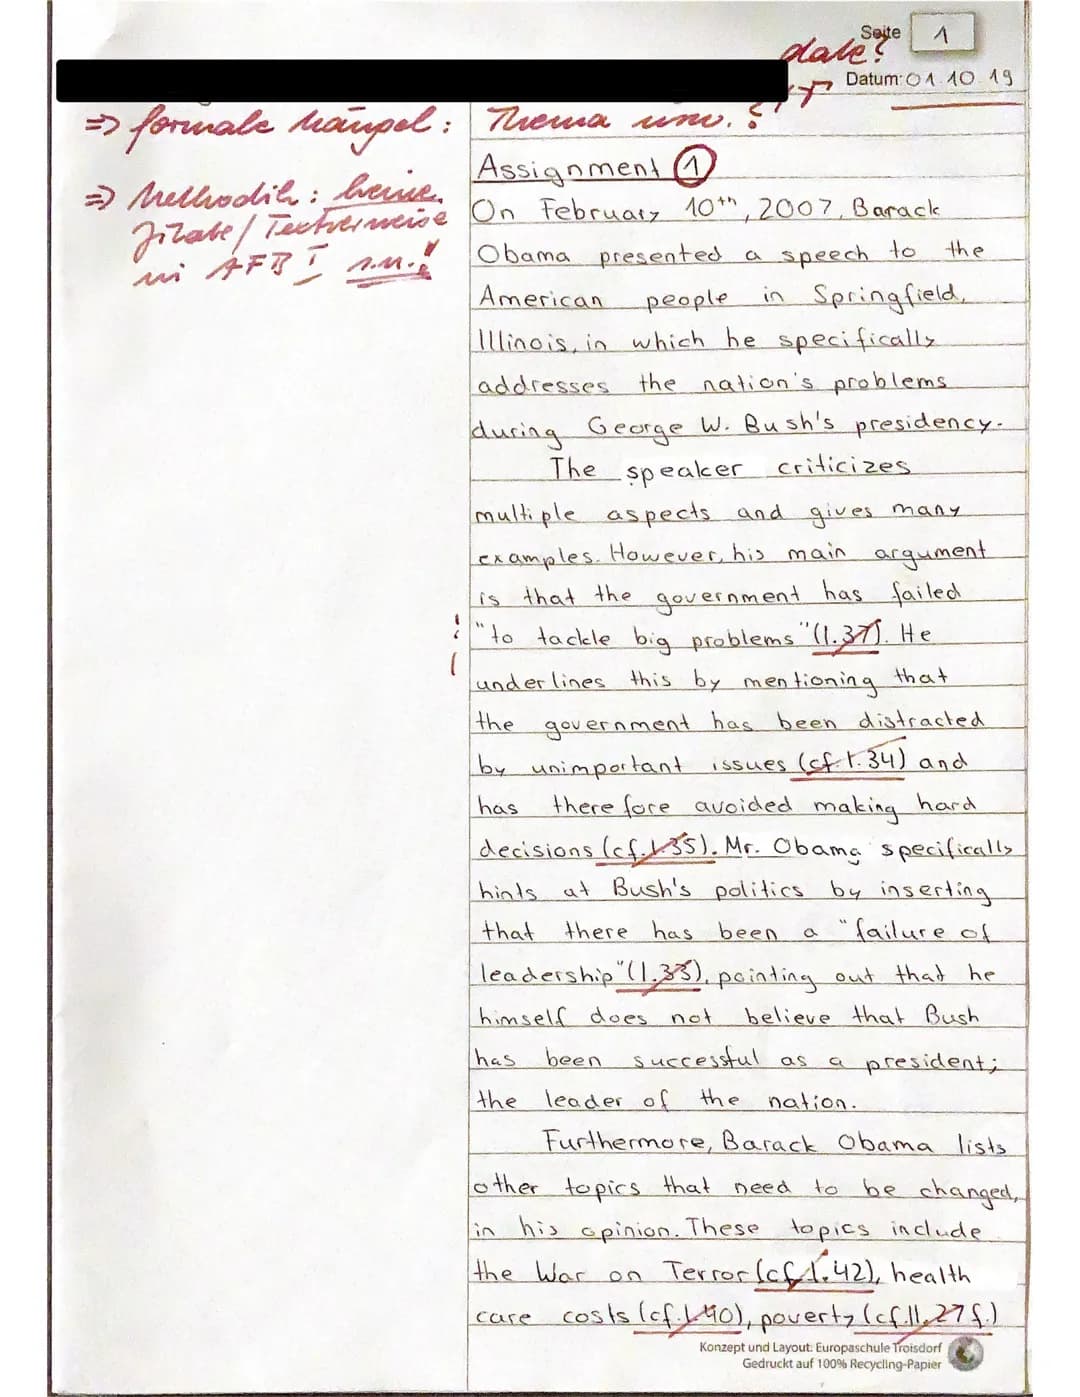 Seite 1
date?
Datum: 01.10.19
=> formale Mängel: Thema usw.?
=> Methodik: keine
Zitate/Textverweise
in AFB I s.u.!
Assignment 1
On February 10th, 2007, Barack
Obama presented a speech to the
American people in Springfield,
Illinois, in which he specifically
addresses the nation's problems
during George W. Bush's presidency.
The speaker criticizes
multiple aspects and gives many
examples. However, his main argument
is that the government has failed
"to tackle big problems"(l.37). He
underlines this by mentioning that
the government has been distracted
by unimportant issues (cf. l. 34) and
has therefore avoided making hard
decisions (cf. l.35). Mr. Obama specifically
hints at Bush's politics by inserting
that there has been a "failure of
leadership"(l.33), pointing out that he
himself does not believe that Bush
has been successful as a president;
the leader of the nation.
Furthermore, Barack Obama lists
other topics that need to be changed,
in his opinion. These topics include
the War on Terror (cf. l. 42), health
care costs (cf. l.40), poverty (cf. ll. 27 f.)
Konzept und Layout: Europaschule Troisdorf
Gedruckt auf 100% Recycling-Papier